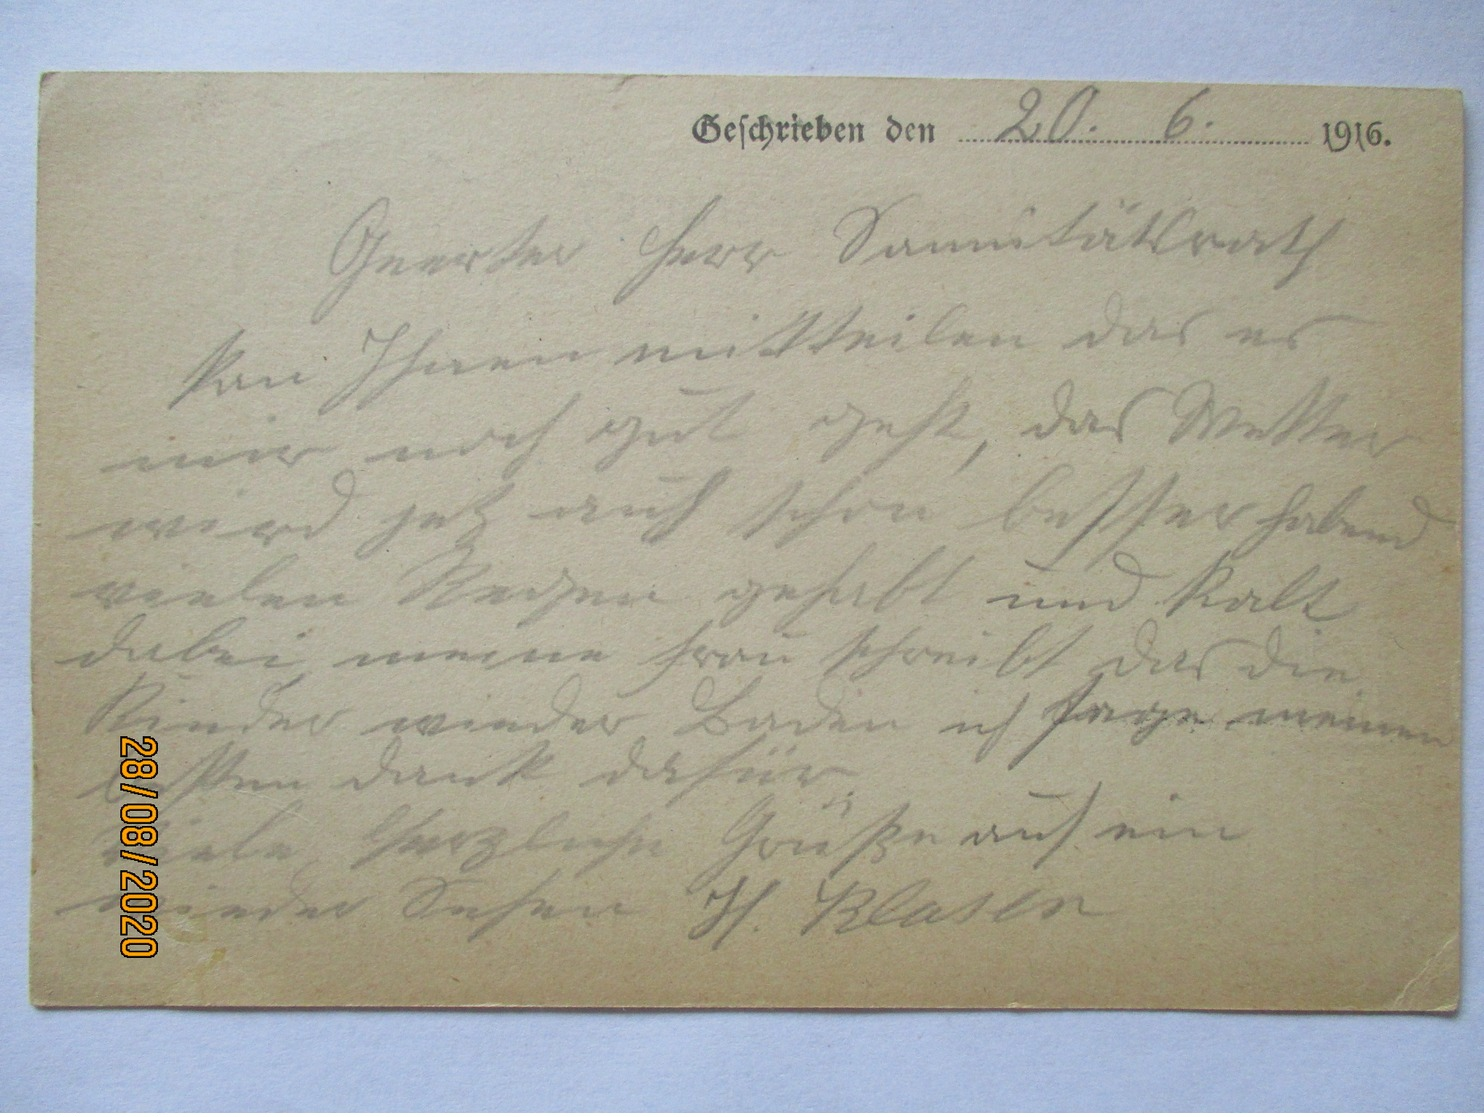 Geschrieben den 20. 6. 1916.
Geerter Herr Sannitätsrath
kan Ihnen mitteilen das es
mir noch gut geht, das Wetter
wird jetz auch schon besser habend
vielen Regen gehabt und kalt
dabei meine Frau schreibt das die
Kinder wieder Baden ich sage meinen
besten dank dafür
Viele Herzliche Grüße auf ein
wieder Sehen H. Blasen
28/08/2020